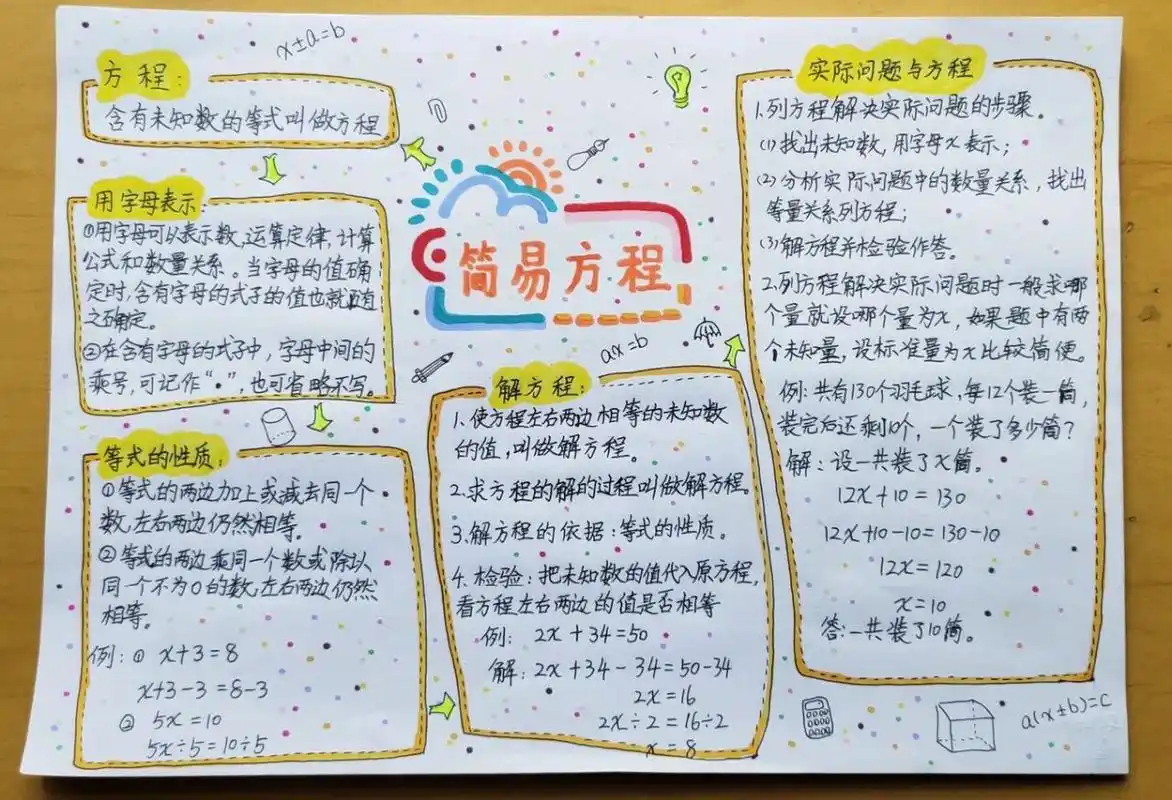 x±a=b
方程:
含有未知数的等式叫做方程
用字母表示:
①用字母可以表示数,运算定律,计算
公式和数量关系。当字母的值确
定时,含有字母的式子的值也就随
之确定。
②在含有字母的式子中,字母中间的
乘号,可记作“•”,也可省略不写。
等式的性质:
①等式的两边加上或减去同一个
数,左右两边仍然相等。
②等式的两边乘同一个数或除以
同一个不为0的数,左右两边仍然
相等。
例:① x+3=8
x+3-3=8-3
② 5x=10
5x÷5=10÷5
简易方程
ax=b
解方程:
1.使方程左右两边相等的未知数
的值,叫做解方程。
2.求方程的解的过程叫做解方程。
3.解方程的依据:等式的性质。
4.检验:把未知数的值代入原方程,
看方程左右两边的值是否相等
例: 2x+34=50
解:2x+34-34=50-34
2x=16
2x÷2=16÷2
x=8
实际问题与方程
1.列方程解决实际问题的步骤。
(1)找出未知数,用字母x表示;
(2)分析实际问题中的数量关系,找出
等量关系列方程;
(3)解方程并检验作答。
2.列方程解决实际问题时一般求哪
个量就设哪个量为x,如果题中有两
个未知量,设标准量为x比较简便。
例:共有130个羽毛球,每12个装一筒,
装完后还剩10个,一个装了多少筒?
解:设一共装了x筒。
12x+10=130
12x+10-10=130-10
12x=120
x=10
答:一共装了10筒。
a(x±b)=c